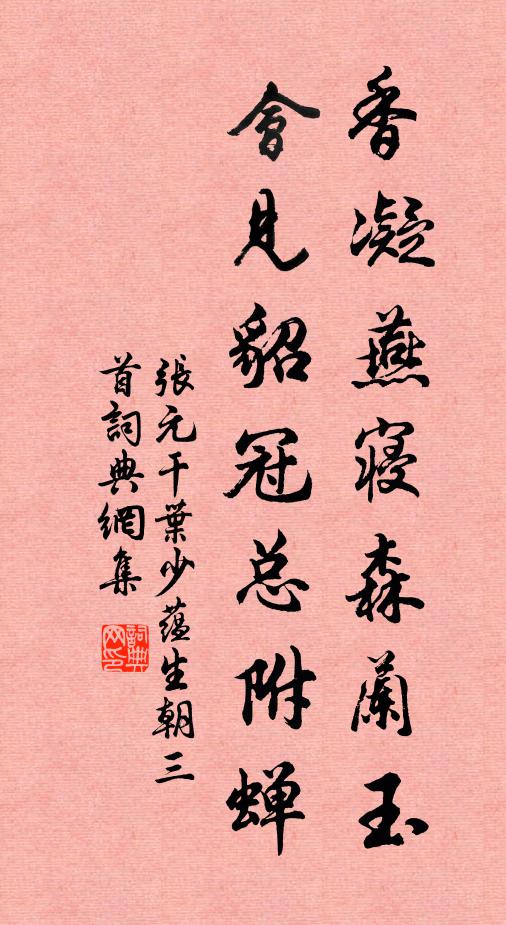 香凝燕寝森蘭玉
會見貂冠总附蝉
張元干葉少蕴生朝三
首詞典網集
詞典网印